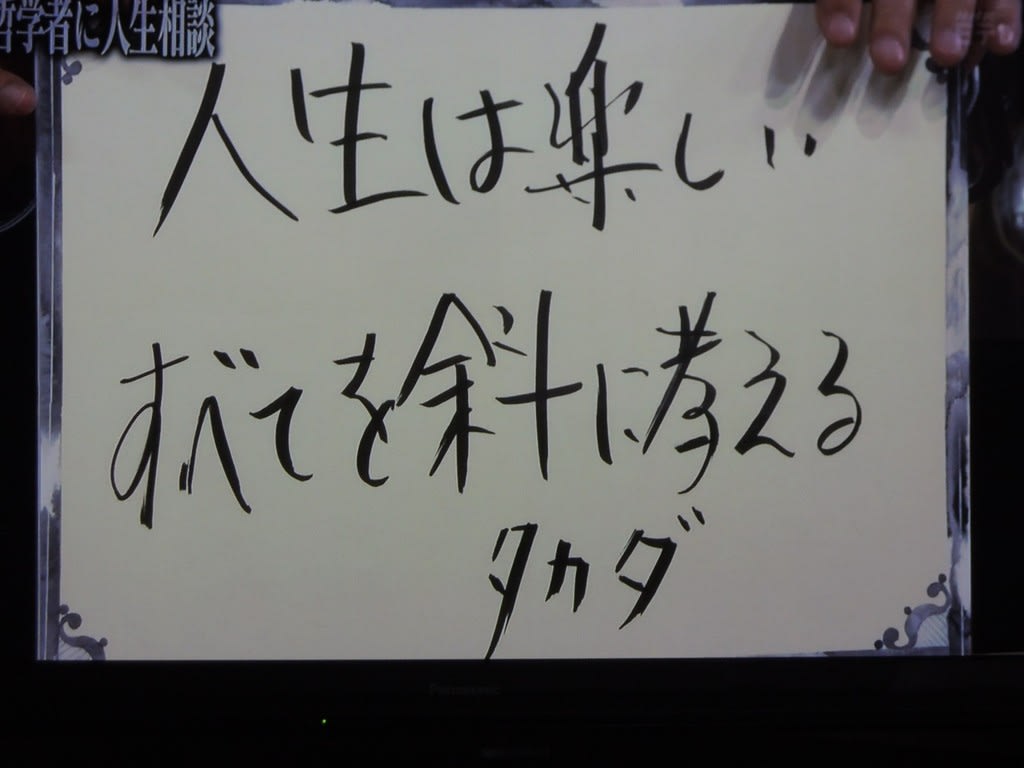 哲学者に人生相談
人生は楽しい
すべてを斜に考える
タカダ
Panasonic